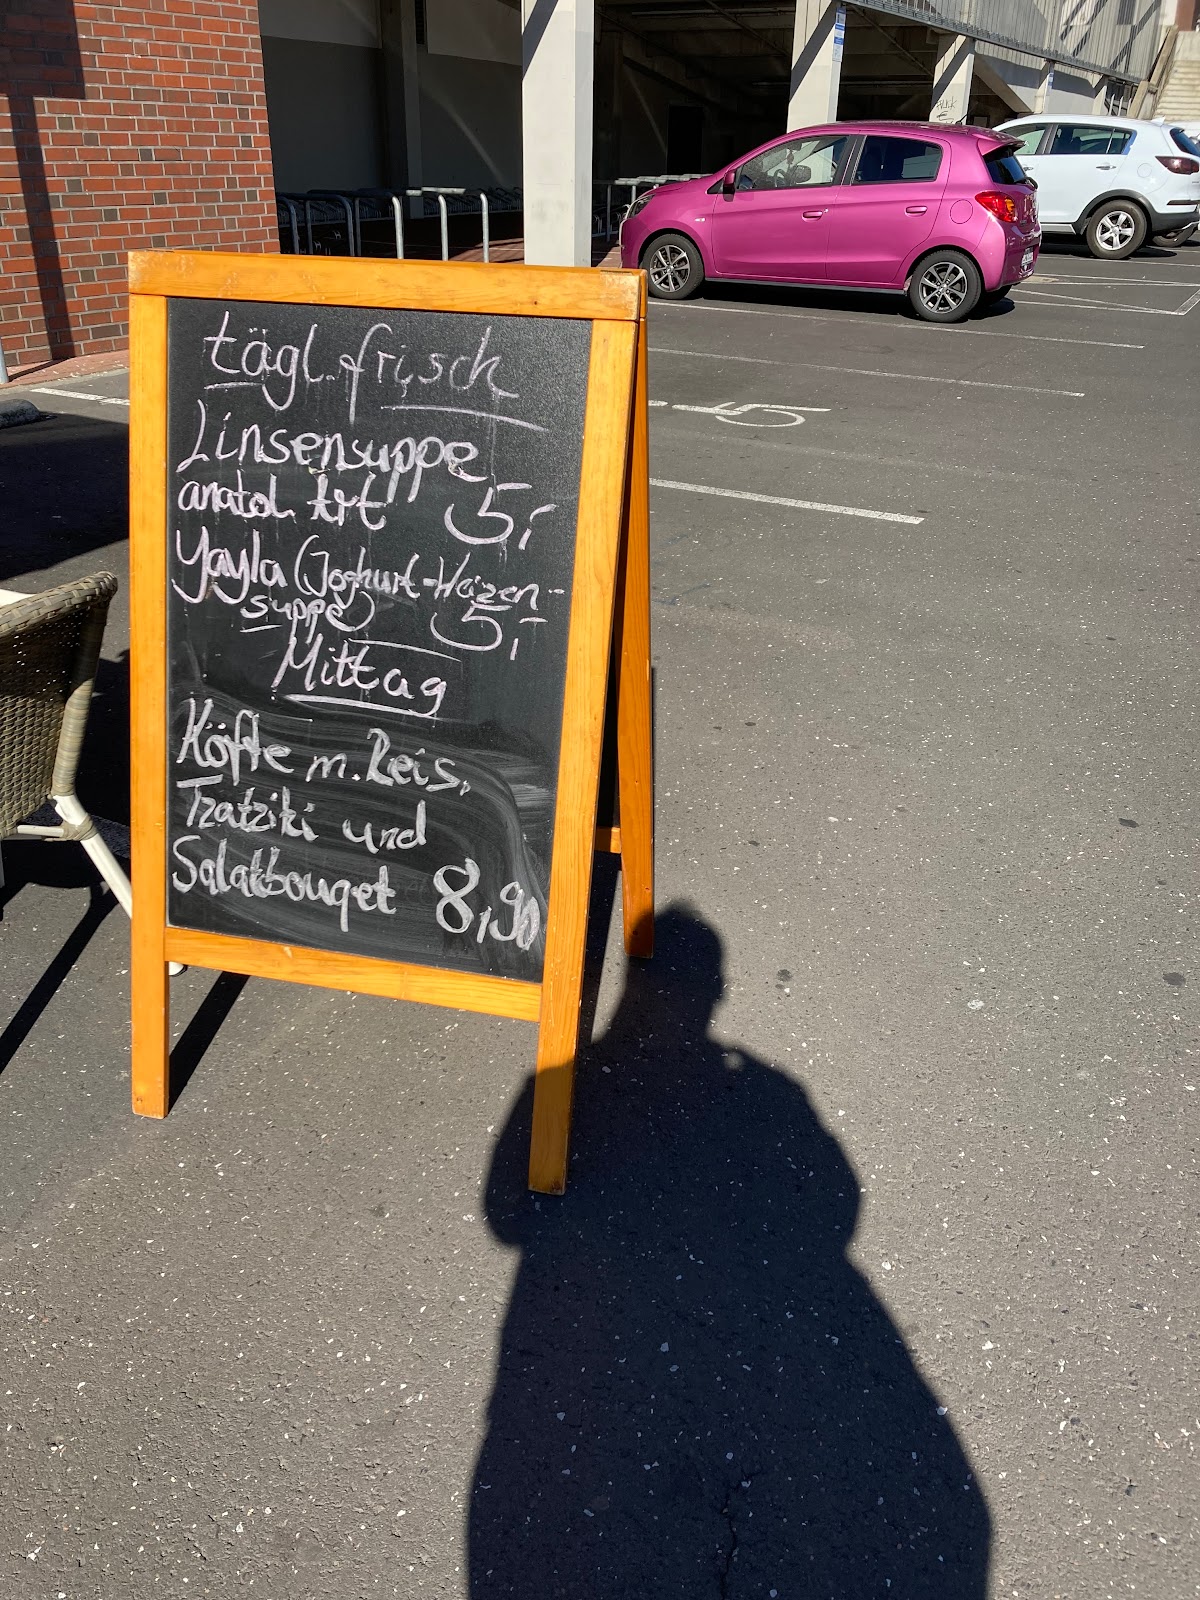 tägl. frisch
Linsensuppe
anatol. Art 5,-
Yayla (Joghurt-Weizen-
suppe) 5,-
Mittag
Köfte m. Reis,
Tzatziki und
Salatbouqet 8,90